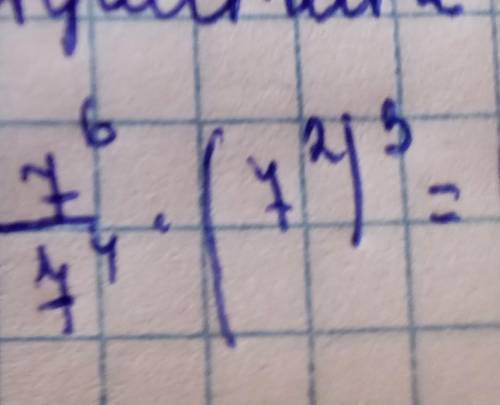 7^6 / 7^4 · (7^2)^3 =